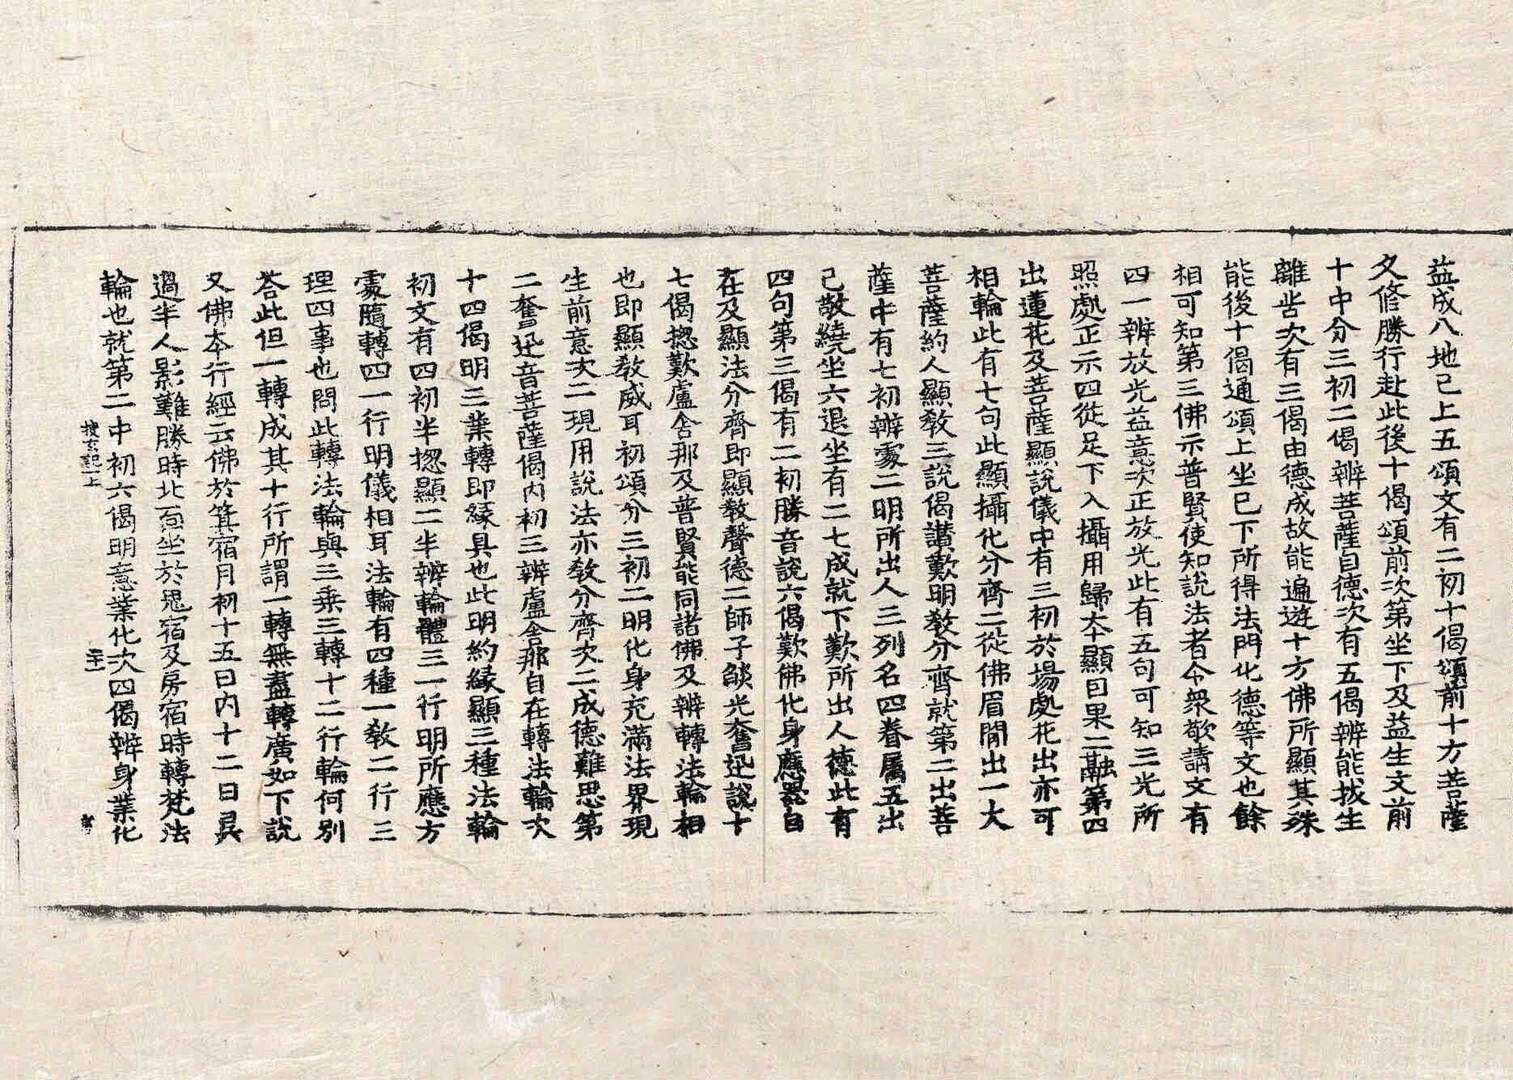 益成八地已上五頌文有二初十偈頌前十方菩薩
久修勝行赴此後十偈頌前次第坐下及益生文前
十中分三初二偈辨菩薩自德次有五偈辨能拔生
離苦次有三偈由德成故能遍遊十方佛所顯其殊
能後十偈通頌上坐已下所得法門化德等文也餘
相可知第三佛示普賢使知說法者令衆敬請文有
四一辨放光益意次正放光此有五句可知三光所
照處正示四從足下入攝用歸本顯因果二融第四
出蓮花及菩薩顯說儀中有三初於場處花出亦可
相輪此有七句此顯攝化分齊二從佛眉間出一大
菩薩約人顯教三說偈讃歎明教分齊就第二出菩
薩中有七初辨處二明所出人三列名四眷属五出
已敬繞坐六退坐有二七成就下歎所出人德此有
四句第三偈有二初勝音說六偈歎佛化身應器自
在及顯法分齊即顯教聲德二師子燄光奮迅說十
七偈揔歎盧舍那及普賢能同諸佛及辨轉法輪相
也即顯教威耳初頌分三初二明化身充滿法界現
生前意次二現用說法亦教分齊次二成德難思第
二奮迅音菩薩偈内初三辨盧舍那自在轉法輪次
十四偈明三葉轉即緣具也此明約緣顯三種法輪
初文有四初半揔顯二半辨輪體三一行明所應方
處隨轉四一行明儀相耳法輪有四種一教二行三
理四事也問此轉法輪與三乘三轉十二行輪何別
荅此但一轉成其十行所謂一轉無盡轉廣如下說
又佛本行經云佛於箕宿月初十五日内十二日㫷
過半人影難勝時北面坐於鬼宿及房宿時轉梵法
搜玄記上 二十一
輪也就第二中初六偈明意業化次四偈辨身業化